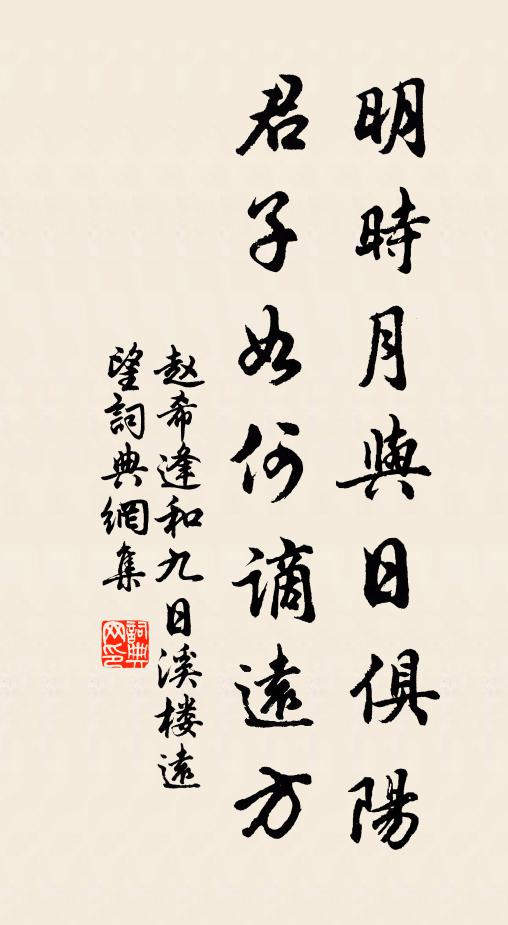 明時月與日俱陽
君子如何謫遠方
赵希逢和九日溪楼遠
望詞典網集
詞典网印